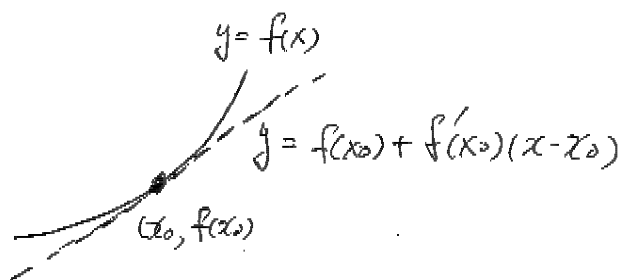 y = f(x)
y = f(x₀) + f'(x₀)(x - x₀)
(x₀, f(x₀)